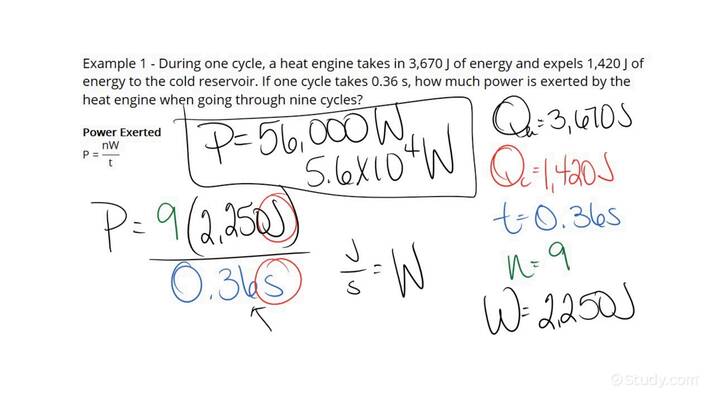 Example 1 - During one cycle, a heat engine takes in 3,670 J of energy and expels 1,420 J of
energy to the cold reservoir. If one cycle takes 0.36 s, how much power is exerted by the
heat engine when going through nine cycles?
Power Exerted
P = nW/t
P=56,000W
5.6X10⁴W
P= 9(2,250J)
0.36s
J/s = W
Qₕ=3,670J
Q꜀=1,420J
t=0.36s
n=9
W=2,250J
©Study.com